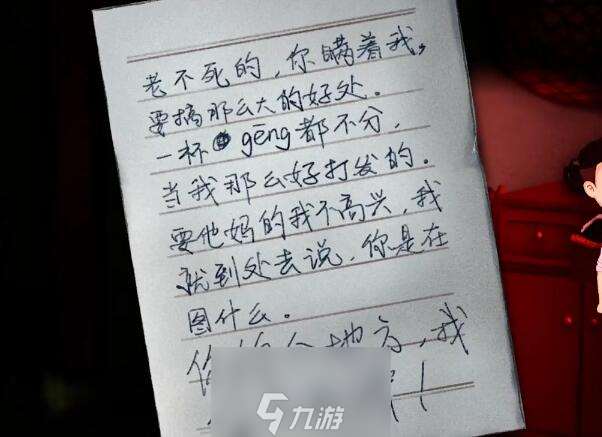 老不死的，你瞒着我，
要搞那么大的好处。
一杯gēng都不分，
当我那么好打发的。
要他妈的我不高兴，我
就到处去说，你是在
图什么。
地方，我
九游